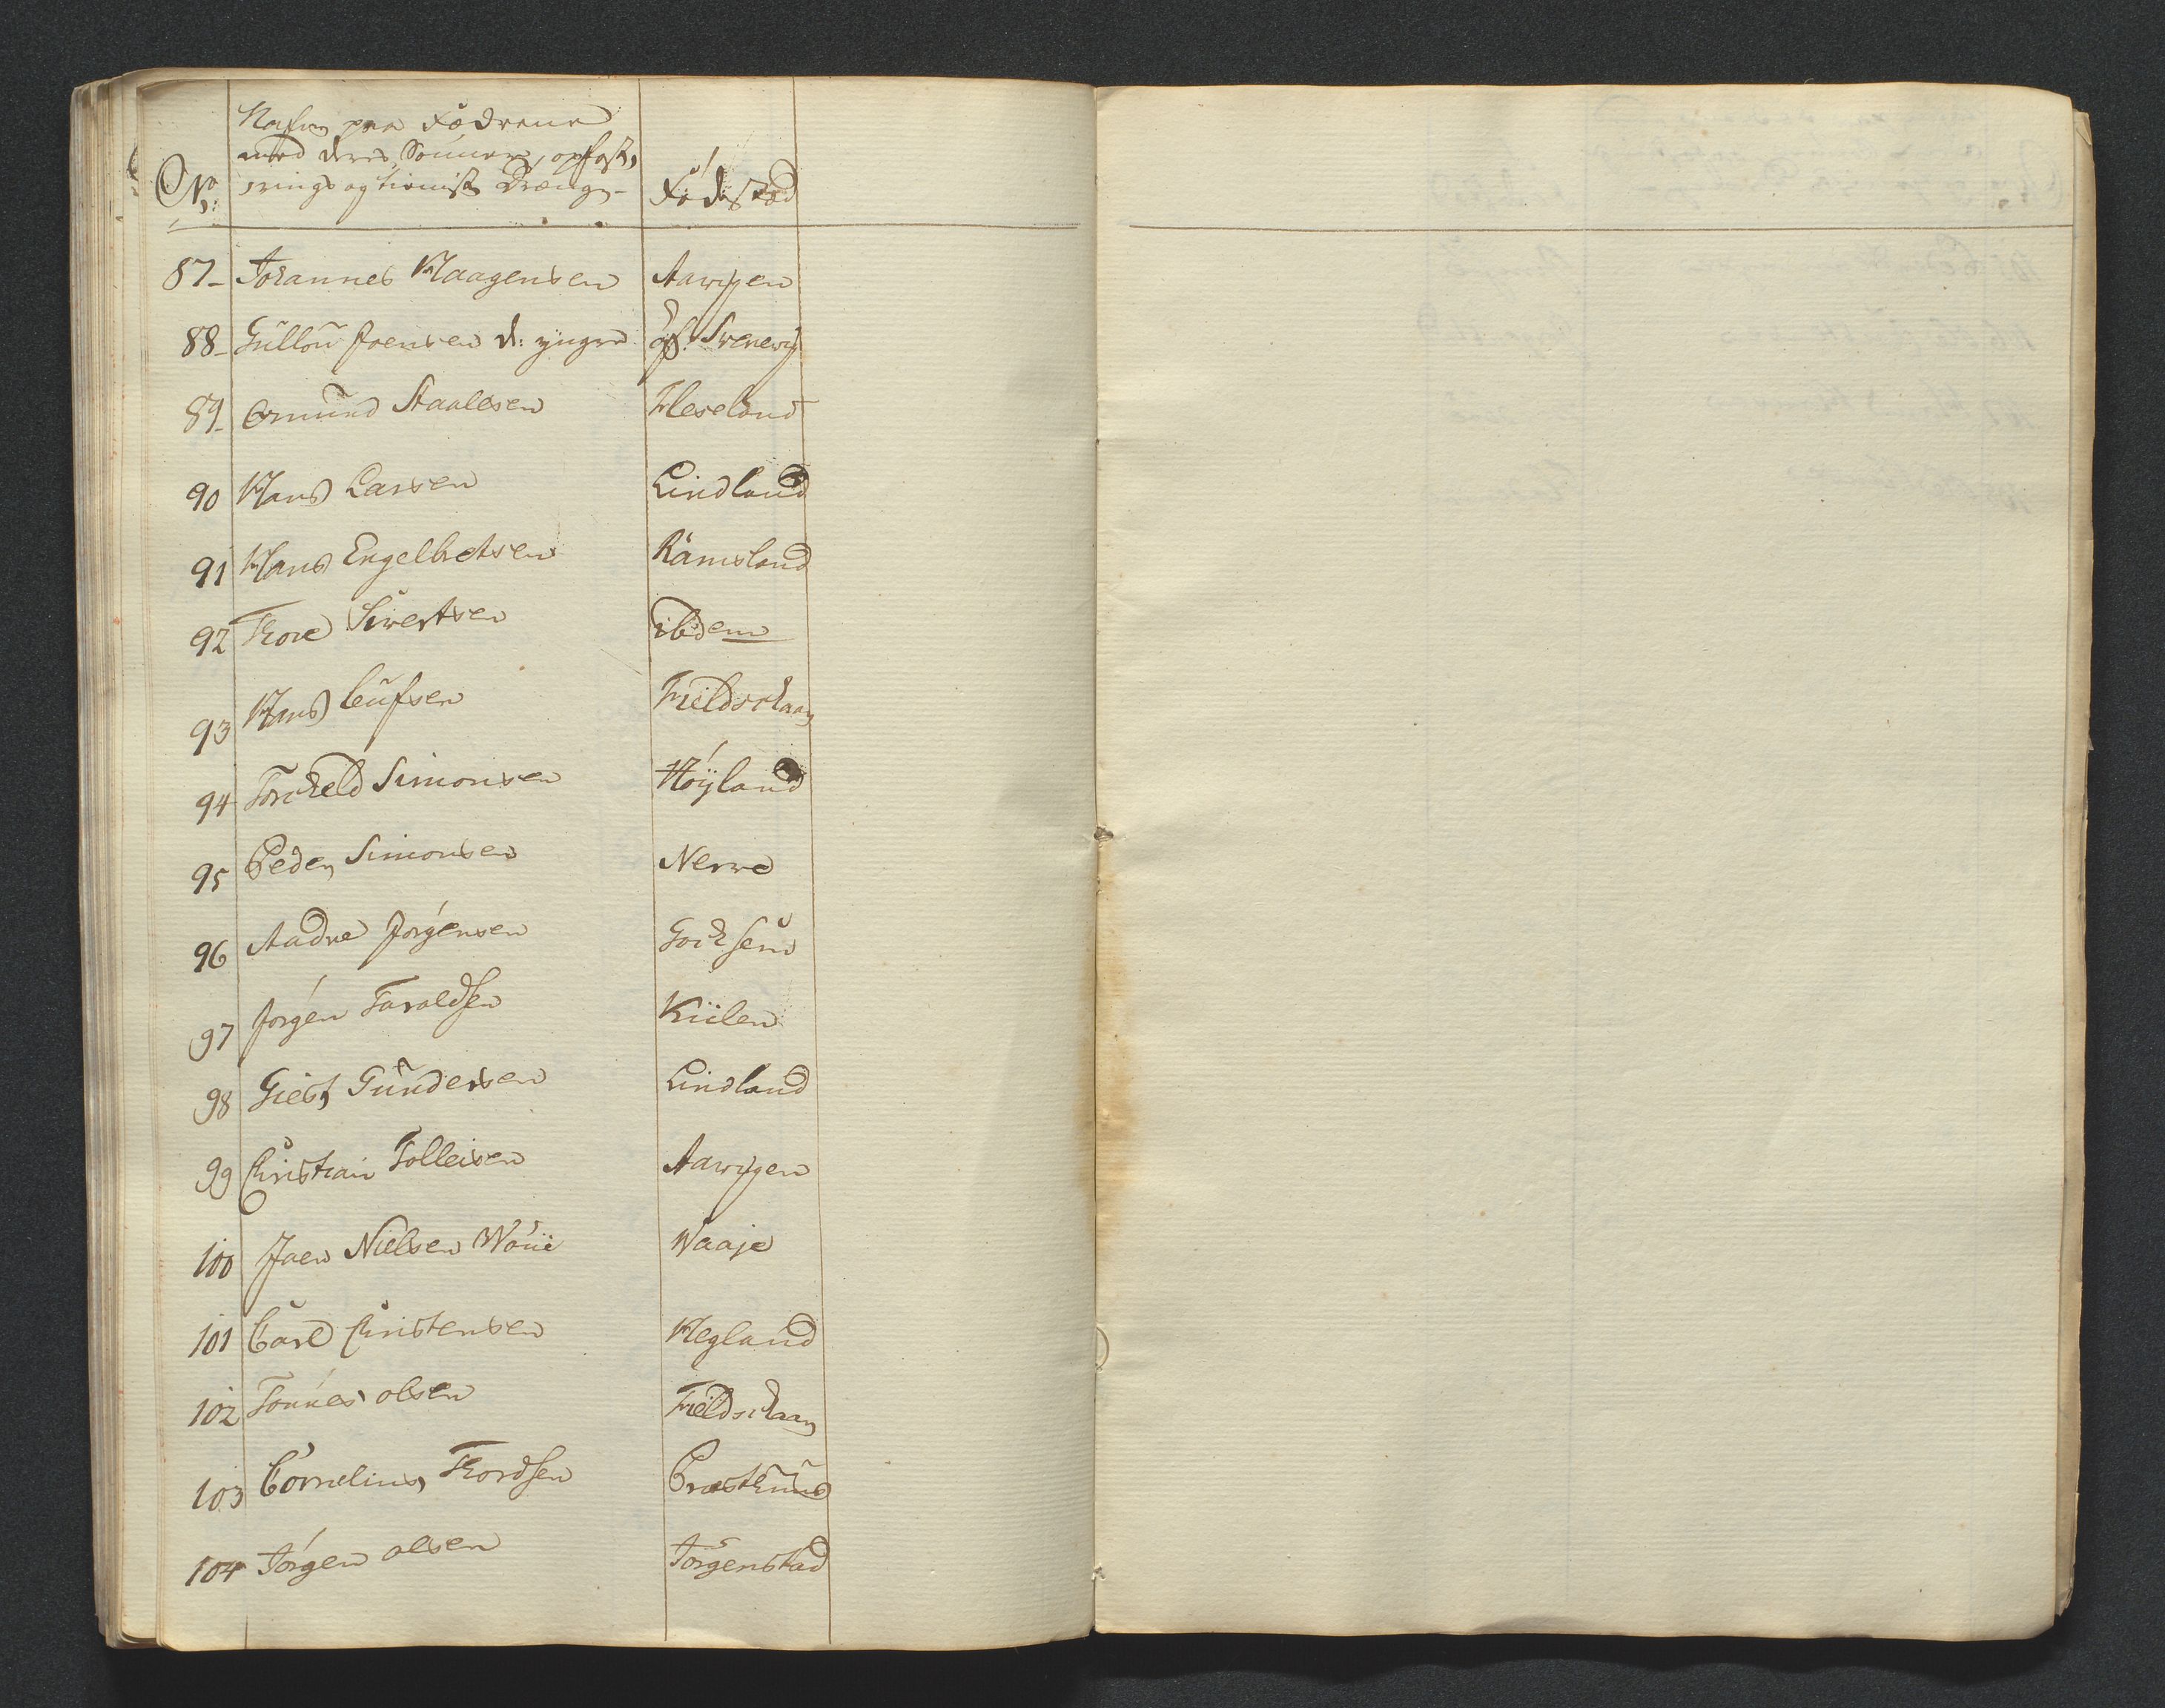 Nafn paa Fædrene
med deres Sønner, opfost,
No: rings og tieniste Drenge - Fødestæd
87 - Johannes Haagensen Aawigen
88 - Gullou Joensen d: yngre øf. Svenevig
89 - Omund Staalesen Heseland
90 Hans Larsen Lindland
91 Hans Engelbretsen Ramsland
92 Thore Sivertsen Ibidem
93 Hans Eufsen Fieldschaar
94 Torckeld Simonsen Høyland
95 Peder Simonsen Nerve
96 Aadne Jørgensen
97 Jørgen Taraldsen Kiilen
98 Giest Gundersen Lindland
99 Christian Tolleisen Aawigen
100 Joen Nielsen Waaje
101 Carl Christensen Hegland
102 Tønnes olsen Fieldschaar
103 Cornelius Thordsen
104 Jørgen olsen Jørgenstad